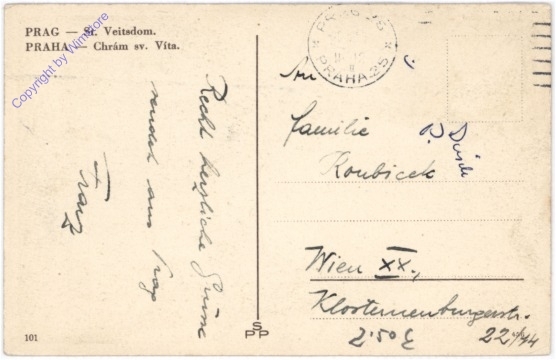 PRAG — St. Veitsdom.
PRAHA — Chrám sv. Víta.
Copyright by Wingstore
Recht herzliche Grüsse
sendet aus Prag
Franz
PRAHA 25
An
Familie
Roubicek
Wien XX.,
Klosterneuburgerstr.
22/44
2·50 €
101
SPP